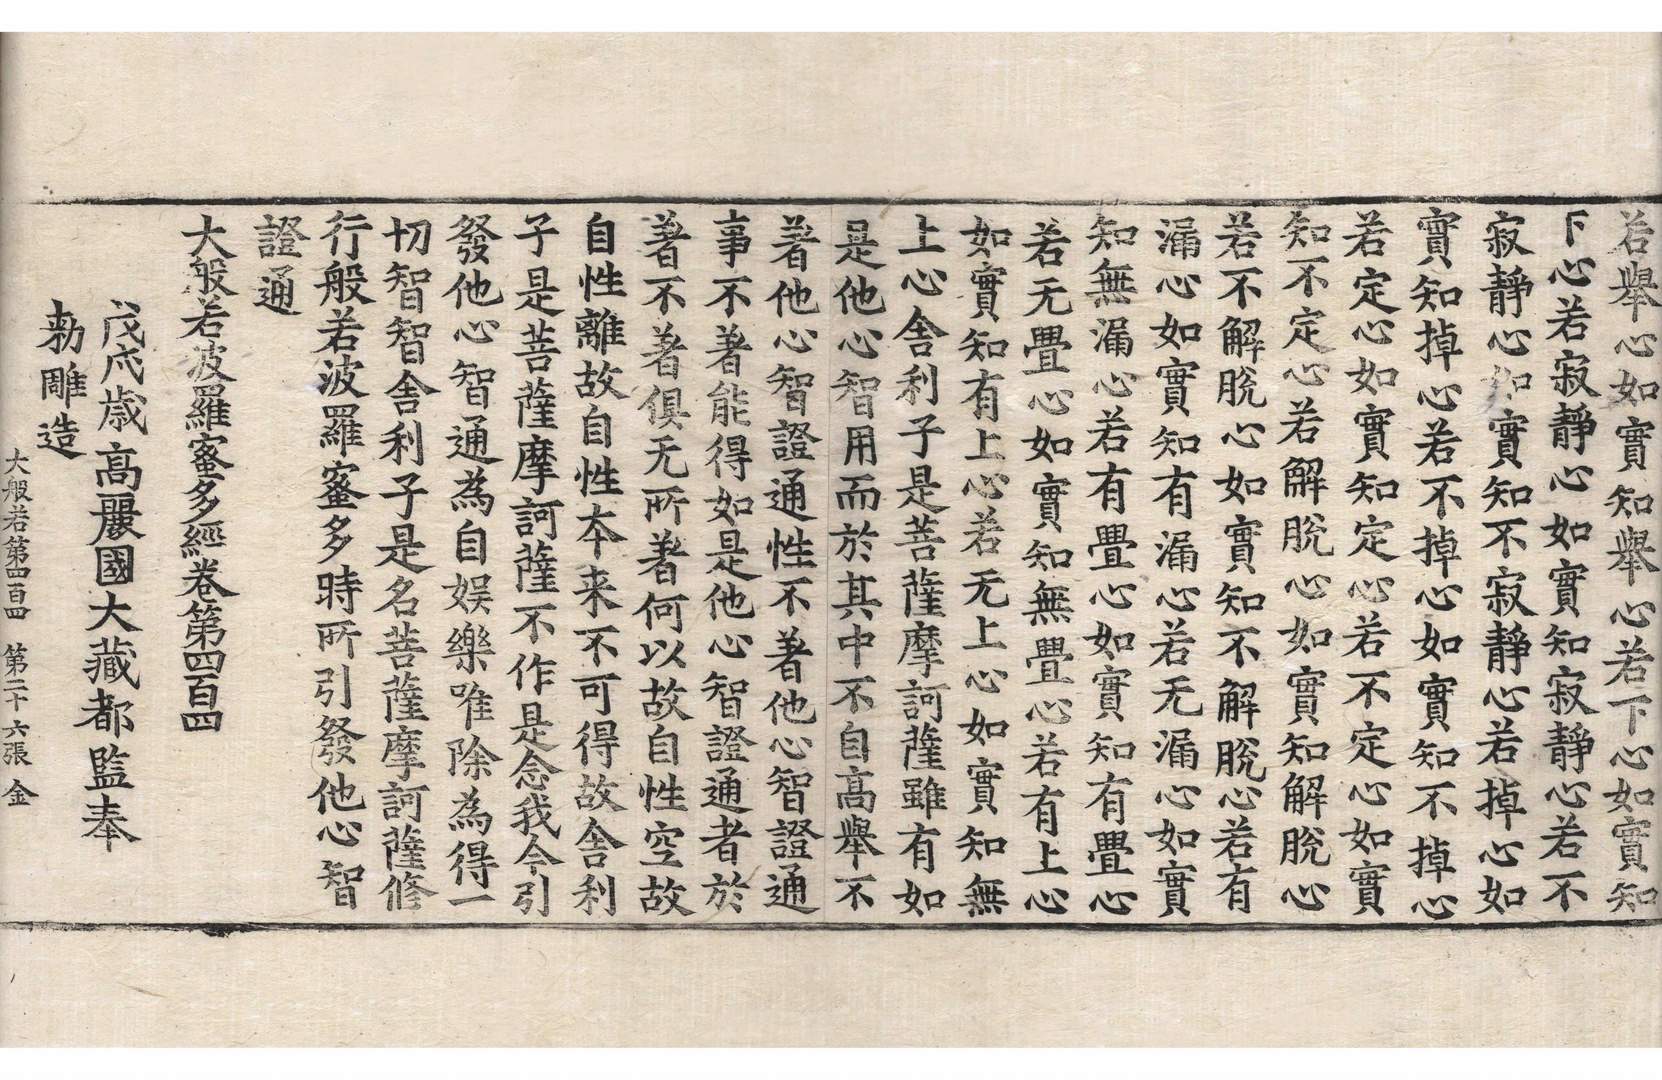 若舉心如實知舉心若下心如實知
下心若寂靜心如實知寂靜心若不
寂靜心如實知不寂靜心若掉心如
實知掉心若不掉心如實知不掉心
若定心如實知定心若不定心如實
知不定心若解脫心如實知解脫心
若不解脫心如實知不解脫心若有
漏心如實知有漏心若无漏心如實
知無漏心若有疊心如實知有疊心
若无疊心如實知無疊心若有上心
如實知有上心若无上心如實知無
上心舍利子是菩薩摩訶薩雖有如
是他心智用而於其中不自高舉不
著他心智證通性不著他心智證通
事不著能得如是他心智證通者於
著不著俱无所著何以故自性空故
自性離故自性本来不可得故舍利
子是菩薩摩訶薩不作是念我今引
發他心智通為自娛樂唯除為得一
切智智舍利子是名菩薩摩訶薩修
行般若波羅蜜多時所引發他心智
證通
大般若波羅蜜多經卷第四百四
戊戌歲高麗國大藏都監奉
勅雕造
大般若第四百四 第二十六張 金